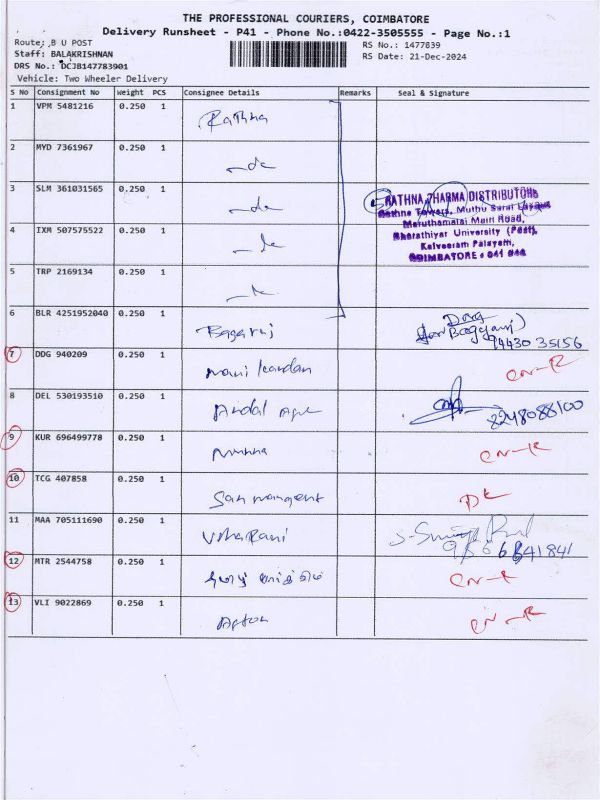 THE PROFESSIONAL COURIERS, COIMBATORE
Delivery Runsheet - P41 - Phone No.:0422-3505555 - Page No.:1
Route: ,B U POST
RS No.: 1477839
Staff: BALAKRISHNAN
RS Date: 21-Dec-2024
DRS No.: DCJB147783901
Vehicle: Two Wheeler Delivery
S No Consignment No Weight PCS Consignee Details Remarks Seal & Signature
1 VPM 5481216 0.250 1
Rathna
2 MYD 7361967 0.250 1
-do
3 SLM 361031565 0.250 1
-do
RATHNA PHARMA DISTRIBUTORS
Rathna Towers, Muthu Surai Layout
Maruthamalai Main Road,
Bharathiyar University (Post),
Kalveeram Palayam,
COIMBATORE - 641 046
4 IXM 507575522 0.250 1
-do
5 TRP 2169134 0.250 1
-do
6 BLR 4251952040 0.250 1
Bagaraj
94430 35156
7 DDG 940209 0.250 1
Mani kandan
CN-R
8 DEL 530193510 0.250 1
Andal
8248088100
9 KUR 696499778 0.250 1
Munna
CN-R
10 TCG 407858 0.250 1
DL
11 MAA 705111690 0.250 1
UshaRani
12 MTR 2544758 0.250 1
CN-R
13 VLI 9022869 0.250 1
CN-R